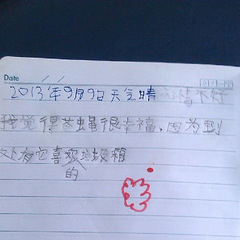 Date / /
2013年9月9日天气晴 心情不好
我觉得苍蝇很幸福,因为到
处有它喜欢垃圾箱
的